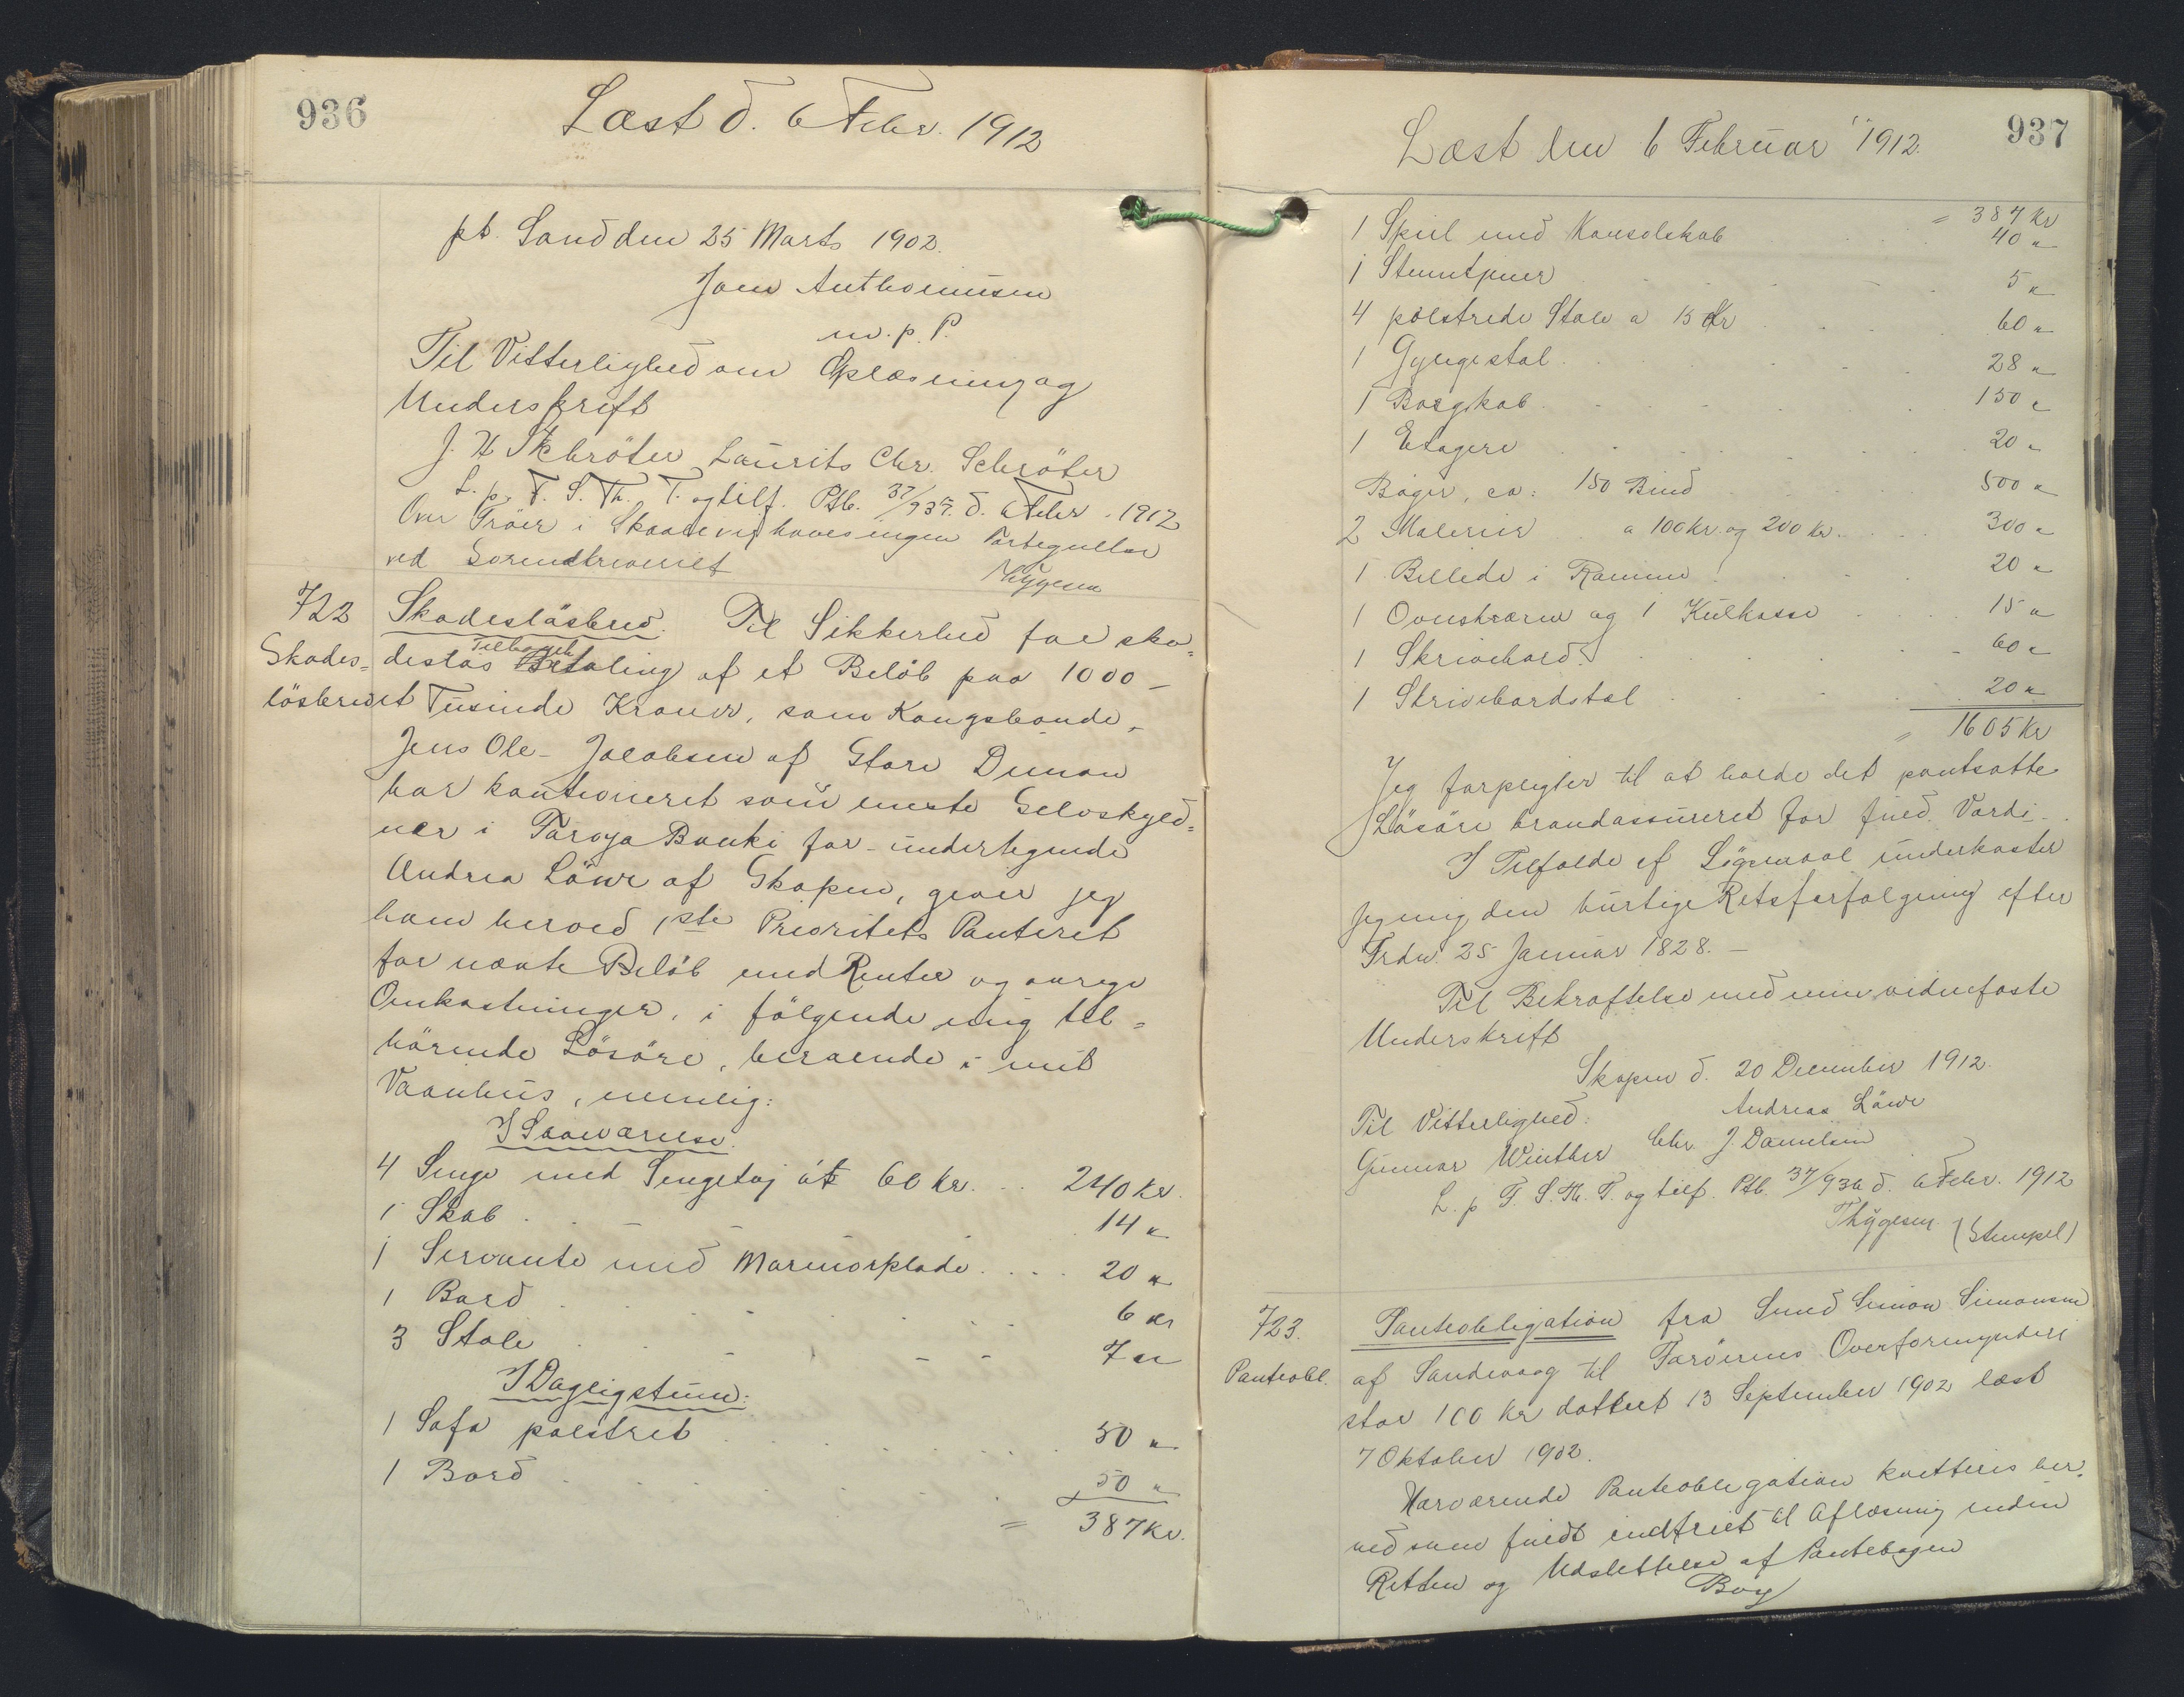 936
Læst d. 6 Febr. 1912
pt. Sand den 25 Marts 1902.
Joen Anthoniusen
m. p. P.
Til Vitterlighed om Oplæsning og
Underskrift
J. H. Schröter Laurits Chr. Schröter
L. p. F. S. Th. T. og tilf. Ptb. 37/937. d. 6 Febr. 1912
Over Tröer i Skaalevig haves ingen
ved Sorenskriveriet
Thygesen
722
Skades-
lösbrev
Skadeslösbrev. Til Sikkerhed for ska-
deslos Tilbage Betaling af et Belöb paa 1000 —
et Tusinde Kroner, som Kongsbonde,
Jens Ole Jacobsen af Store Dimon
har kautioneret som eneste Selvskyld-
ner i Föroya Banki for undertegnede
Andrea Löwe af Skopen, giver jeg
ham herved 1ste Prioritets Panteret
for nævnte Belöb med Renter og øvrige
Omkostninger, i fölgende mig til-
hörende Lösöre, beroende i mit
Vaanhus, nemlig:
I Sovevarelse.
4 Senge med Sengetoj át 60 kr. . . 240 kr.
1 Skab . . . 14 "
1 Servante med Marmorplade . . . . 20 "
1 Bord . . . 6 kr
3 Stole . . . 7 "
I Dagligstuen:
1 Sofa polstret . . . 50 "
1 Bord . . . 50 "
= 387 kr.
937
Læst den 6 Februar 1912.
= 387 kr
1 Speil med Konsolskab . . . 40 "
1 . . . 5 "
4 polstrede Stole a 15 Kr . . . 60 "
1 Gyngestol . . . 28 "
1 Bogskab . . . 150 "
1 Etagere . . . 20 "
Böger, ca: 150 Bind . . . 500 "
2 Malerier a 100 kr. og 200 kr. . . . 300 "
1 Billede i Ramme . . . 20 "
1 Ovnskærm og 1 Kulkasse . . . 15 "
1 Skrivebord . . . 60 "
1 Skrivebordstol . . . 20 "
= 1605 kr
Jeg forpligter til at holde det pantsatte
Lösöre brandassureret for fuld Vardi.
I Tilfælde af Sögsmaal underkaster
jeg mig den hurtige Retsforfolgning efter
Frdn. 25 Januar 1828. —
Til Bekræftelse med min vidnefaste
Underskrift
Skopen d. 20 December 1912.
Andreas Löwe
Til Vitterlighed:
Gunnar Winther Chr. J. Danielsen
L. p F. S. Th. T. og tilf. Ptb. 37/936 d. 6 Febr. 1912
Thygesen (Stempel)
723.
Panteobl.
Panteobligation fra Smed Simon Simonsen
af Sandevaag til Færöernes Overformynderi
stor 100 kr dateret 13 September 1902 læst
7 Oktober 1902.
Nærværende Panteobligation kvitteres her-
ved som fuldt indfriet til Aflæsning inden
Retten og Udslettelse af Pantebogen
Böy